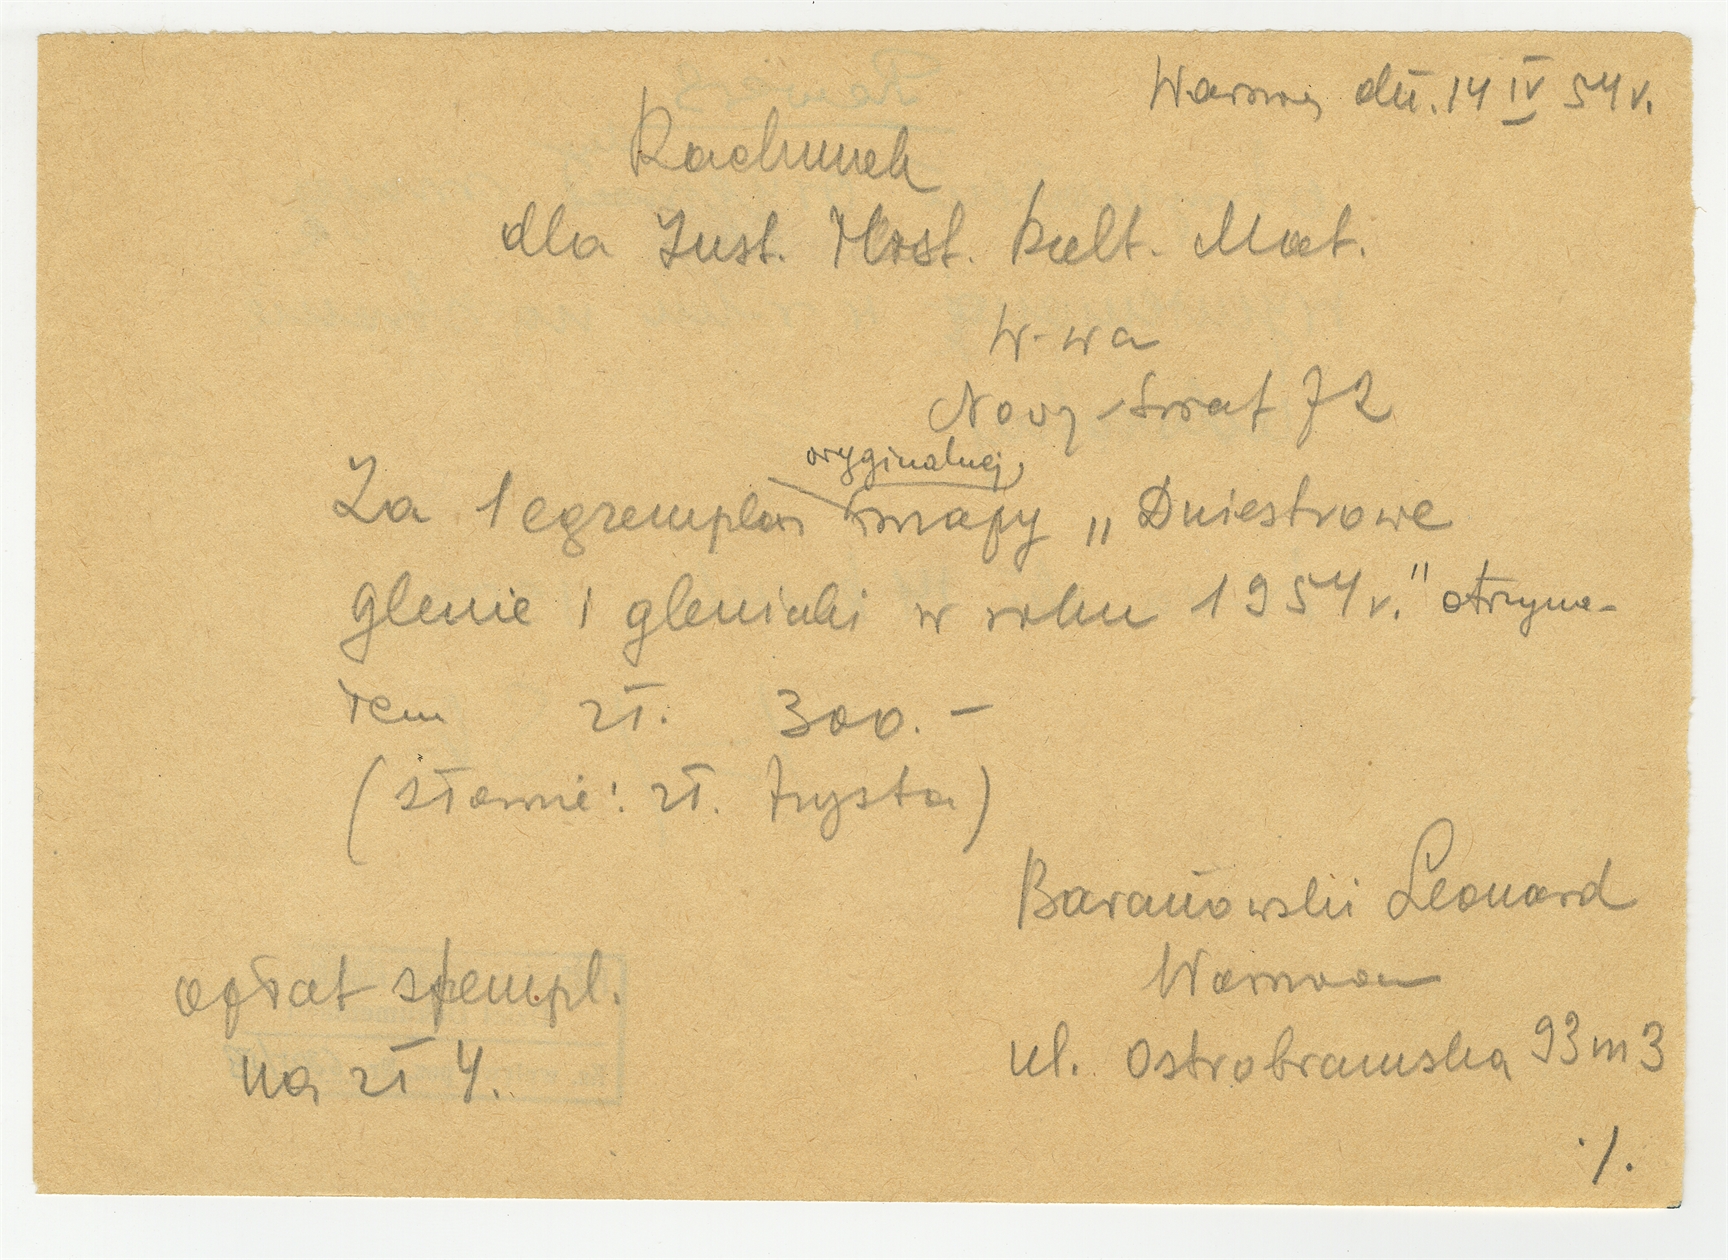 Warszawa, dń. 14 IV 54 r.
Rachunek
dla Inst. Hist. Kult. Mat.
W-wa
Nowy-Świat 72
oryginalnej
Za 1 egzemplarz mapy „Dniestrowe
glenie i gleniaki w roku 1954 r." otrzyma-
łem zł. 300.-
(słownie: zł. trzysta)
Baranowski Leonard
Warszawa
ul. Ostrobramska 93 m 3
opłat stempl.
na zł 4.
./.